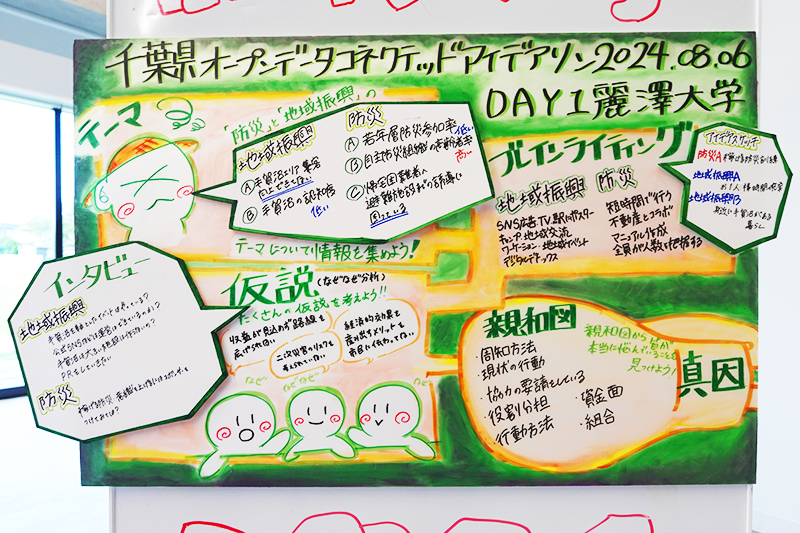 千葉県オープンデータコネクテッドアイデアソン2024.08.06
DAY1 麗澤大学
テーマ
「防災」と「地域振興」の
地域振興
Ⓐ手賀沼エリア 集客
Ⓑ手賀沼の認知度
低い
防災
Ⓐ若年層防災参加率
低い
Ⓑ自主防災組織の高齢者率
高い
Ⓒ帰宅困難者へ
避難施設までの誘導に
困っている
テーマについて情報を集めよう!
ブレインライティング
地域振興
SNS広告 TV 駅にポスター
キャンプ 地域交流
ワーケーション 地域イベント
デジタルデトックス
防災
短時間で行う
不動産とコラボ
マニュアル作成
全員が人数を把握する
アイデアスケッチ
防災A
地域振興A
地域振興B
インタビュー
地域振興
PRをしていきたい
防災
仮説(なぜなぜ分析)
たくさんの仮説を考えよう!!
収益が見込めず路線を
広げられない
二次災害のリスクを
考えられていない
経済的効果を
産み出すメリットを
市民にわかってない
なぜ
なぜなぜ
なぜ
親和図
・周知方法
・現状の行動
・協力の要請をしている
・役割分担
・行動方法
・資金面
・組合
親和図から皆が
本当に悩んでいることを
見つけよう!
真因